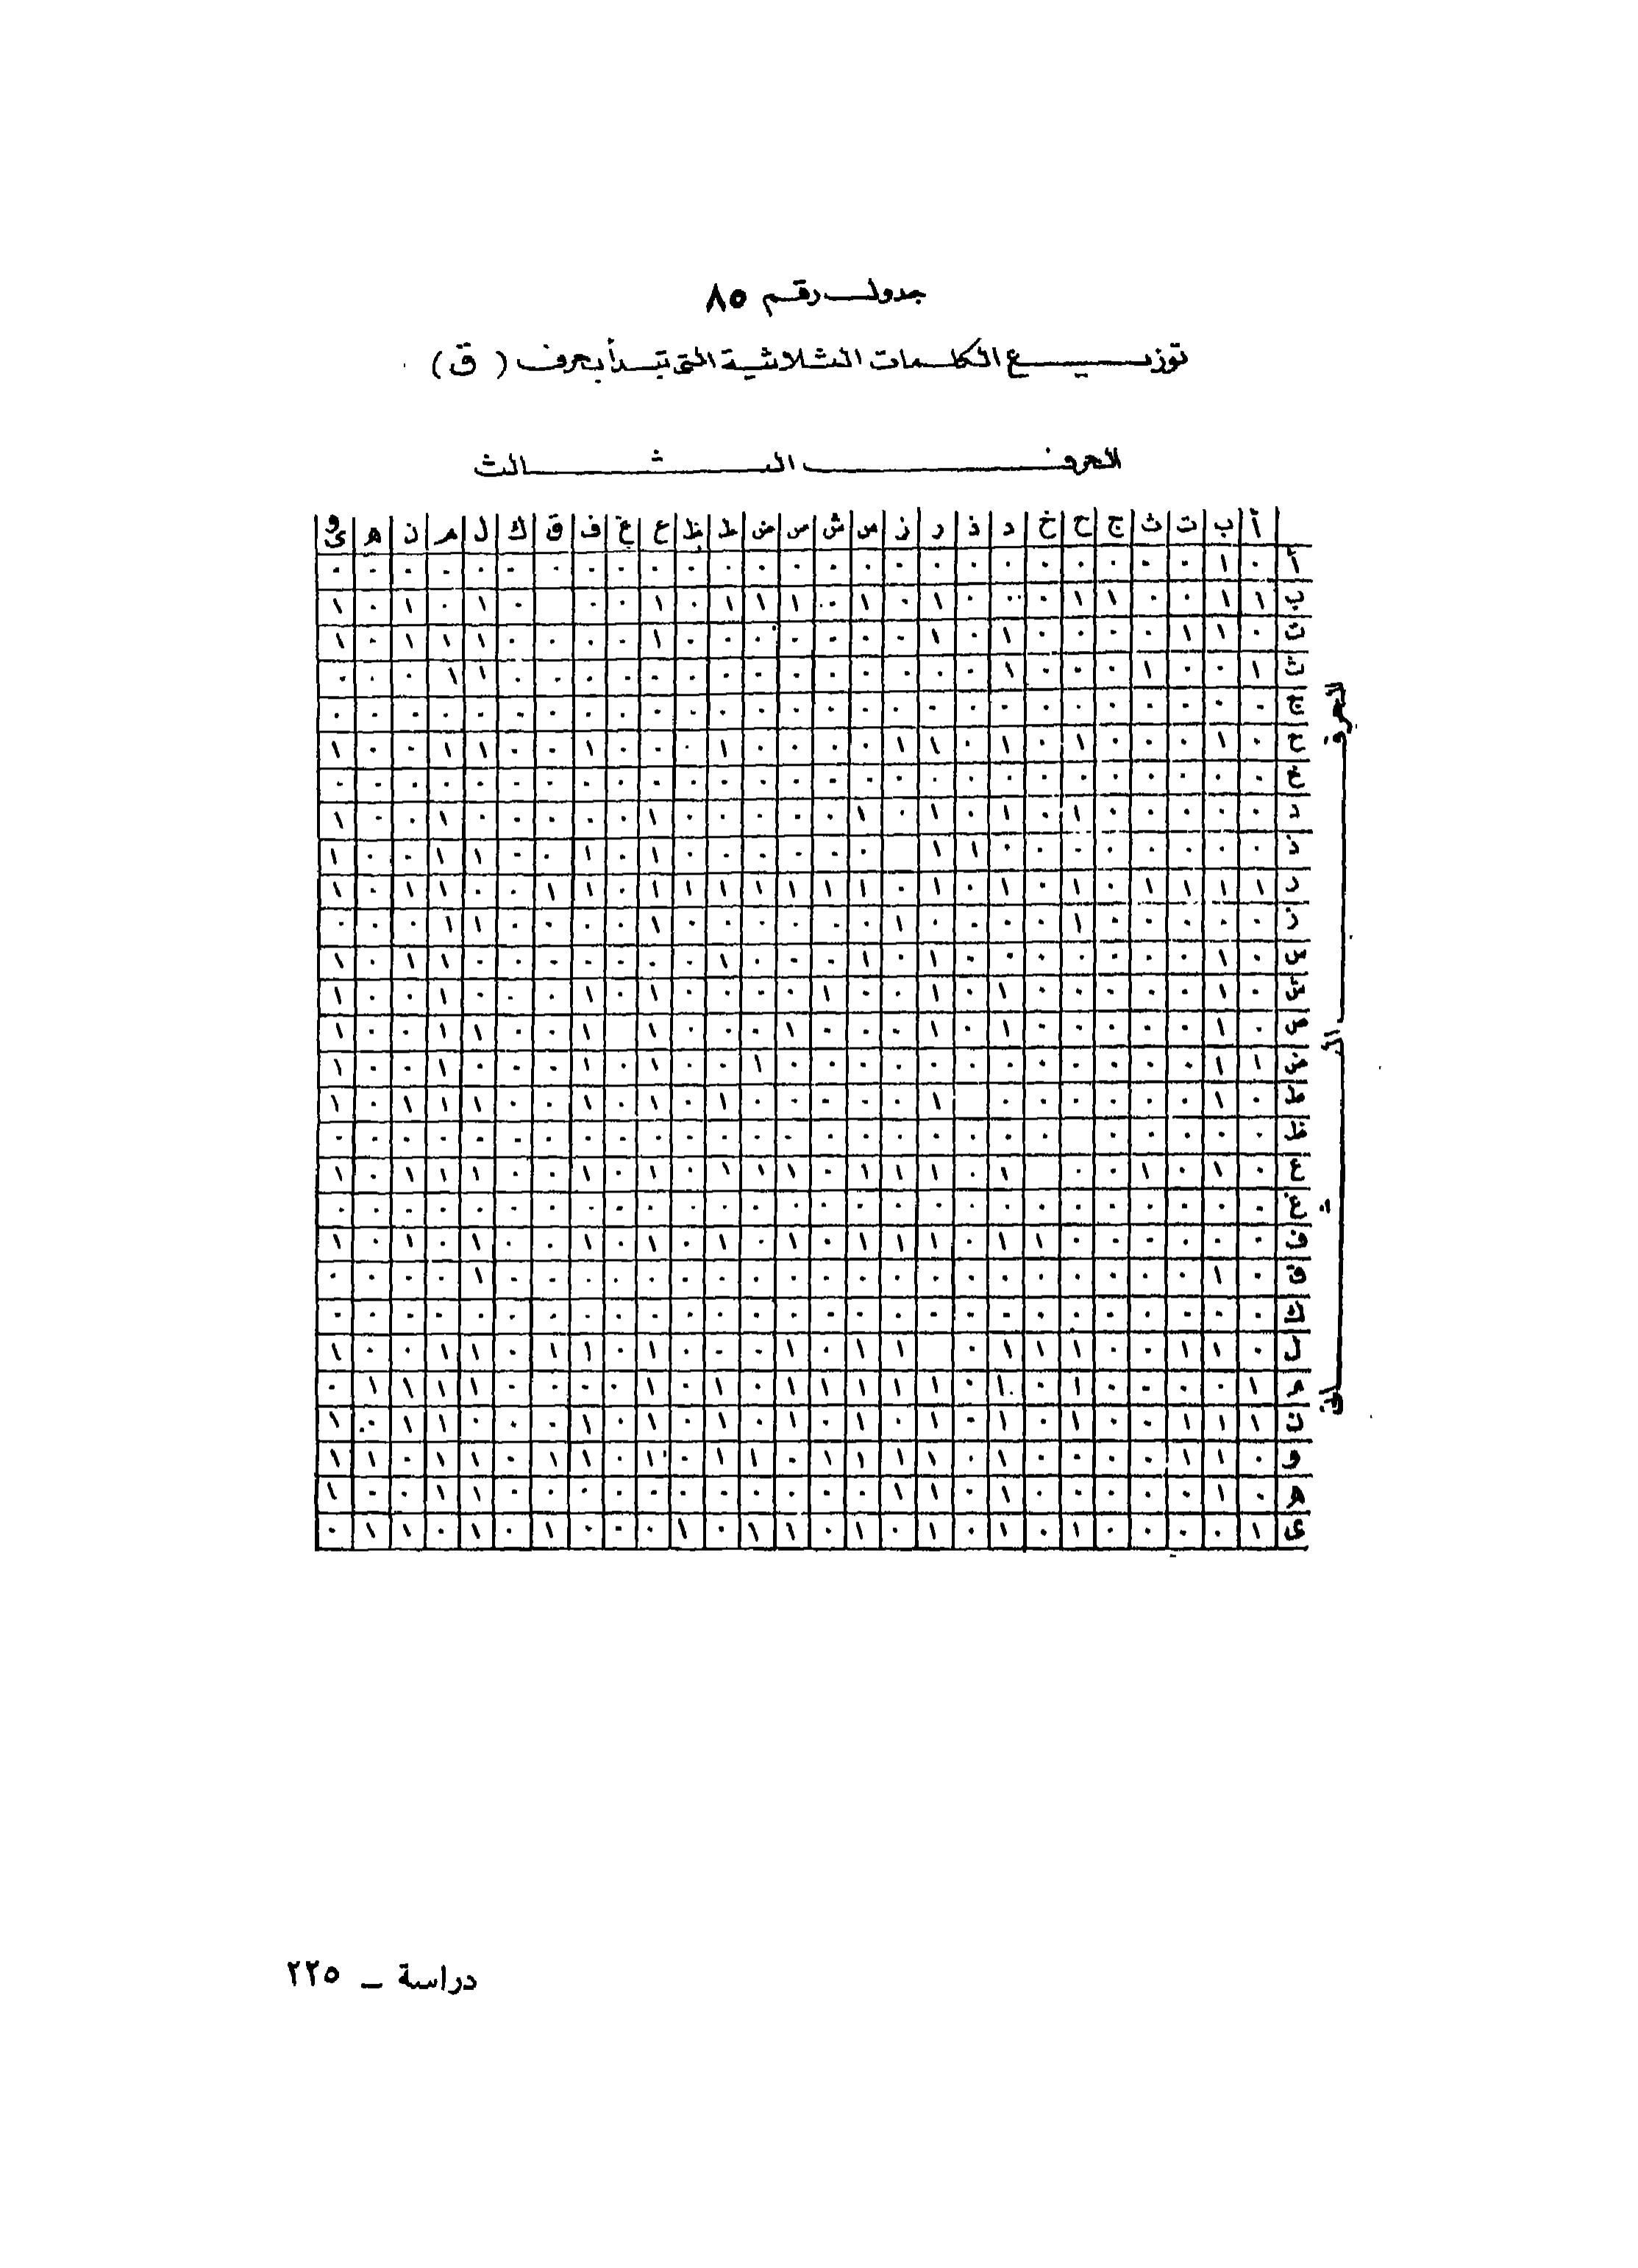 جدول رقم ٨٥
توزيع الكلمات الثلاثية التى تبدأ بحرف ( ق )
الحرف الثالث
أ ب ت ث ج ح خ د ذ ر ز س ش ص ض ط ظ ع غ ف ق ك ل م ن ه و ى
الحرف الثانى
أ ٠ ١ ٠ ٠ ٠ ٠ ٠ ٠ ٠ ٠ ٠ ٠ ٠ ٠ ٠ ٠ ٠ ٠ ٠ ٠ ٠ ٠ ٠ ٠ ٠ ٠ ٠
ب ١ ١ ٠ ٠ ١ ١ ٠ ٠ ٠ ١ ٠ ١ ٠ ١ ١ ١ ٠ ١ ٠ ٠ ٠ ١ ٠ ١ ٠ ١
ت ٠ ١ ١ ٠ ٠ ٠ ٠ ١ ٠ ١ ٠ ٠ ٠ ٠ ٠ ٠ ٠ ١ ٠ ٠ ٠ ٠ ١ ١ ١ ٠ ١
ث ١ ٠ ٠ ١ ٠ ٠ ٠ ١ ٠ ٠ ٠ ٠ ٠ ٠ ٠ ٠ ٠ ٠ ٠ ٠ ٠ ٠ ١ ١ ٠ ٠ ٠
ج ٠ ٠ ٠ ٠ ٠ ٠ ٠ ٠ ٠ ٠ ٠ ٠ ٠ ٠ ٠ ٠ ٠ ٠ ٠ ٠ ٠ ٠ ٠ ٠ ٠ ٠ ٠
ح ٠ ١ ٠ ٠ ٠ ١ ٠ ١ ٠ ١ ١ ٠ ٠ ٠ ٠ ١ ٠ ٠ ٠ ١ ٠ ٠ ١ ١ ٠ ٠ ١
خ ٠ ٠ ٠ ٠ ٠ ٠ ٠ ٠ ٠ ٠ ٠ ٠ ٠ ٠ ٠ ٠ ٠ ٠ ٠ ٠ ٠ ٠ ٠ ٠ ٠ ٠ ٠
د ٠ ٠ ٠ ٠ ٠ ١ ٠ ١ ٠ ١ ٠ ١ ٠ ٠ ٠ ٠ ٠ ١ ٠ ٠ ٠ ٠ ٠ ١ ٠ ٠ ١
ذ ٠ ٠ ٠ ٠ ٠ ٠ ٠ ٠ ١ ١ ٠ ٠ ٠ ٠ ٠ ٠ ١ ٠ ١ ٠ ٠ ١ ١ ٠ ٠ ١
ر ١ ١ ١ ١ ٠ ١ ٠ ١ ٠ ١ ٠ ١ ١ ١ ١ ١ ١ ١ ٠ ١ ١ ٠ ٠ ١ ١ ٠ ١
ز ٠ ٠ ٠ ٠ ٠ ١ ٠ ٠ ٠ ٠ ١ ٠ ٠ ٠ ٠ ٠ ٠ ١ ٠ ٠ ٠ ٠ ١ ١ ٠ ٠ ٠
س ٠ ١ ٠ ٠ ٠ ٠ ٠ ٠ ٠ ١ ٠ ١ ٠ ٠ ٠ ١ ٠ ٠ ٠ ٠ ٠ ٠ ٠ ١ ١ ٠ ١
ش ٠ ١ ٠ ٠ ٠ ٠ ٠ ١ ٠ ١ ٠ ٠ ١ ٠ ٠ ٠ ٠ ١ ٠ ١ ٠ ٠ ٠ ١ ٠ ٠ ١
ص ٠ ١ ٠ ٠ ٠ ٠ ٠ ١ ٠ ١ ٠ ٠ ٠ ١ ٠ ٠ ٠ ١ ١ ٠ ٠ ١ ١ ٠ ٠ ١
ض ١ ١ ٠ ٠ ٠ ٠ ٠ ٠ ٠ ٠ ٠ ٠ ٠ ٠ ١ ٠ ٠ ١ ٠ ١ ٠ ٠ ٠ ١ ٠ ٠ ١
ط ٠ ١ ٠ ٠ ٠ ٠ ٠ ٠ ١ ٠ ٠ ٠ ٠ ٠ ١ ٠ ١ ٠ ١ ٠ ٠ ١ ١ ١ ٠ ١
ظ ٠ ٠ ٠ ٠ ٠ ٠ ٠ ٠ ٠ ٠ ٠ ٠ ٠ ٠ ٠ ٠ ٠ ٠ ٠ ٠ ٠ ٠ ٠ ٠ ٠ ٠
ع ٠ ١ ٠ ١ ٠ ٠ ١ ٠ ١ ١ ١ ٠ ١ ١ ١ ٠ ١ ٠ ١ ٠ ٠ ١ ١ ١ ٠ ١
غ ٠ ٠ ٠ ٠ ٠ ٠ ٠ ٠ ٠ ٠ ٠ ٠ ٠ ٠ ٠ ٠ ٠ ٠ ٠ ٠ ٠ ٠ ٠ ٠ ٠ ٠ ٠
ف ٠ ٠ ٠ ٠ ٠ ٠ ١ ١ ٠ ١ ١ ١ ٠ ١ ٠ ١ ٠ ١ ٠ ١ ٠ ٠ ١ ٠ ١ ٠ ١
ق ٠ ١ ٠ ٠ ٠ ٠ ٠ ٠ ٠ ٠ ٠ ٠ ٠ ٠ ٠ ٠ ٠ ٠ ٠ ٠ ٠ ٠ ١ ٠ ٠ ٠ ٠
ك ٠ ٠ ٠ ٠ ٠ ٠ ٠ ٠ ٠ ٠ ٠ ٠ ٠ ٠ ٠ ٠ ٠ ٠ ٠ ٠ ٠ ٠ ٠ ٠ ٠ ٠ ٠
ل ٠ ١ ١ ٠ ٠ ١ ١ ١ ٠ ١ ١ ٠ ١ ٠ ٠ ٠ ١ ٠ ١ ١ ٠ ١ ١ ٠ ٠ ١
م ١ ٠ ٠ ٠ ٠ ١ ٠ ١ ٠ ١ ١ ١ ١ ١ ٠ ١ ٠ ١ ٠ ٠ ٠ ٠ ١ ١ ١ ١ ٠
ن ١ ١ ١ ٠ ٠ ١ ٠ ١ ٠ ١ ٠ ١ ٠ ١ ٠ ١ ٠ ١ ٠ ١ ٠ ٠ ٠ ١ ١ ٠ ١
و ٠ ١ ١ ٠ ٠ ٠ ٠ ١ ٠ ١ ١ ١ ١ ٠ ١ ١ ٠ ١ ٠ ١ ١ ٠ ١ ١ ٠ ١ ١
ه ٠ ١ ٠ ٠ ٠ ٠ ٠ ١ ٠ ١ ١ ٠ ٠ ٠ ٠ ٠ ٠ ٠ ٠ ٠ ٠ ٠ ١ ١ ٠ ٠ ١
ى ١ ٠ ٠ ٠ ٠ ١ ٠ ١ ٠ ١ ٠ ١ ٠ ١ ١ ٠ ١ ٠ ٠ ٠ ١ ٠ ١ ٠ ١ ١ ٠
دراسة ـ ٢٢٥